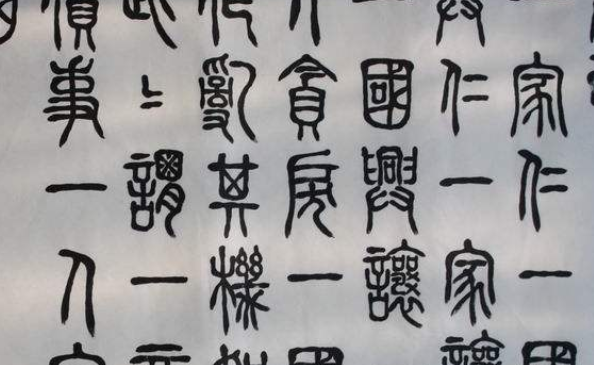 一家仁一國
興仁一家讓
一國興讓
人貪戾一國
作亂其機如
此〻謂一言
僨事一人定